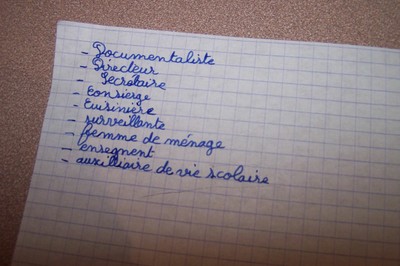 - Documentaliste
- Directeur
- Sécrétaire
- Consierge
- Cuisinière
- surveillante
- femme de ménage
- ensegnent
- auxiliaire de vie scolaire